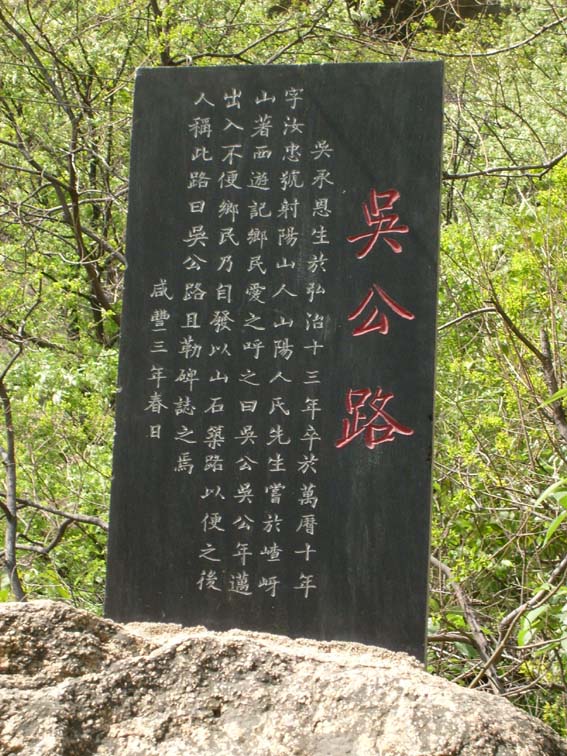 吳公路
吳承恩生於弘治十三年卒於萬曆十年
字汝忠號射陽山人山陽人氏先生嘗於嵖岈
山著西遊記鄉民愛之呼之曰吳公吳公年邁
出入不便鄉民乃自發以山石築路以便之後
人稱此路曰吳公路且勒碑誌之焉
咸豐三年春日